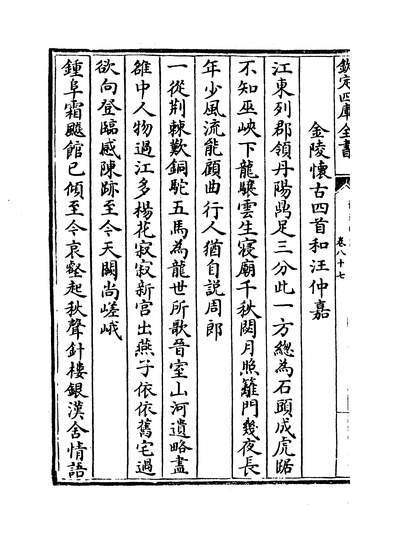 欽定四庫全書
卷八十七
金陵懷古四首和汪仲嘉
江東列郡領丹陽鼎足三分此一方總為石頭成虎踞
不知巫峽下龍驤雲生寢廟千秋閟月照籬門幾夜長
年少風流能顧曲行人猶自說周郎
一從荆棘歎銅駝五馬為龍世所歌晉室山河遺略盡
雒中人物過江多楊花寂寂新宮出燕子依依舊宅過
欲向登臨感陳跡至今天闕尚嵯峨
鍾阜霜飈館已傾至今哀壑起秋聲針樓銀漢舍情語